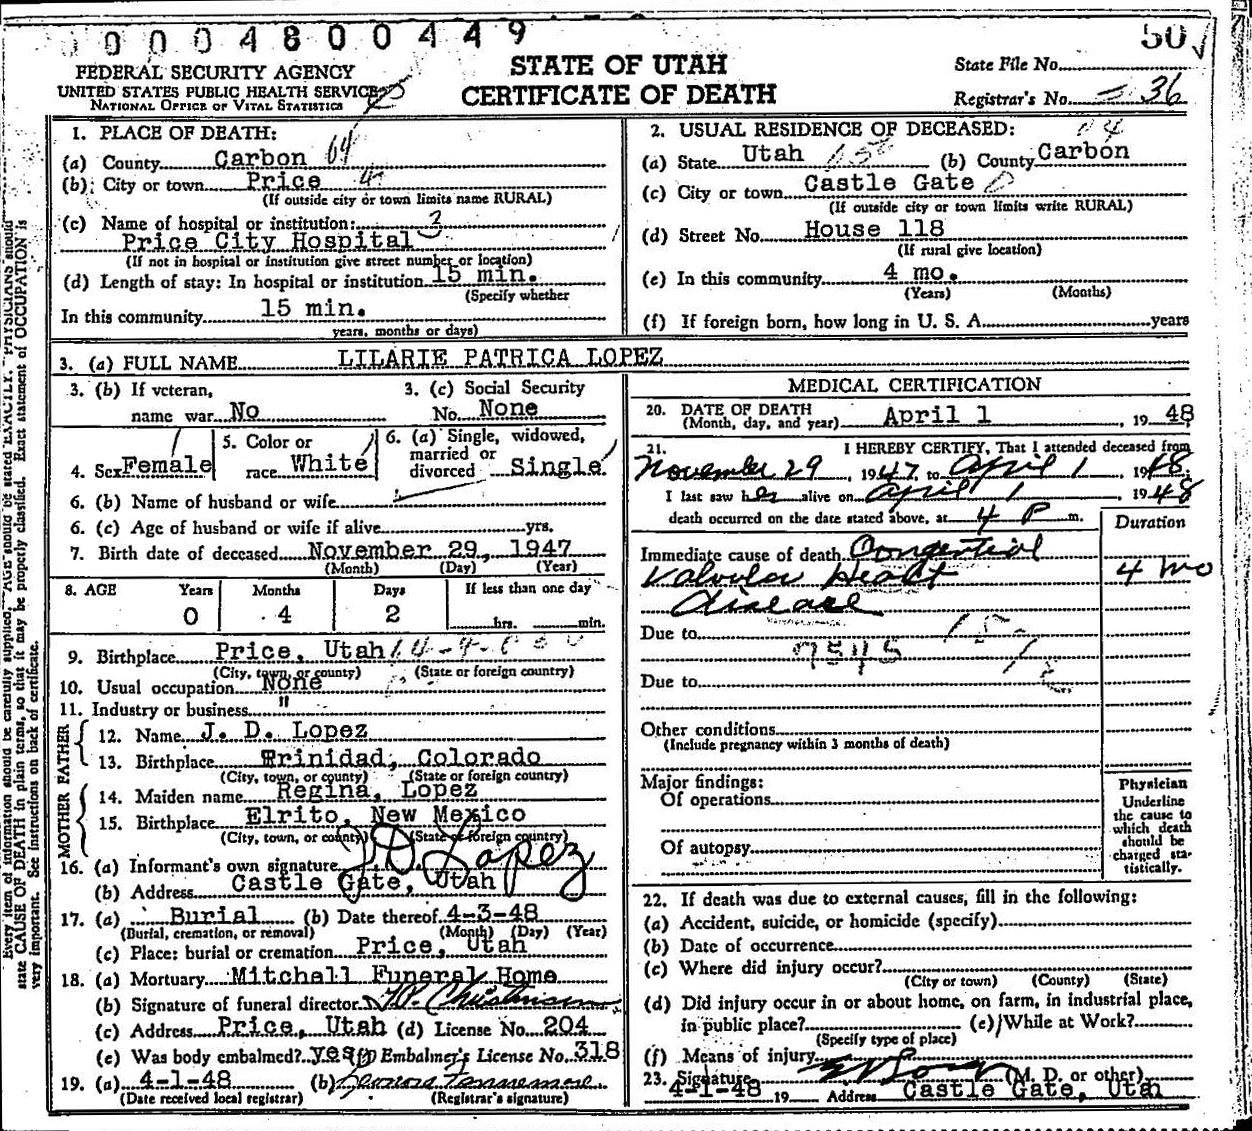 0004800449
50
FEDERAL SECURITY AGENCY
UNITED STATES PUBLIC HEALTH SERVICE
NATIONAL OFFICE OF VITAL STATISTICS
STATE OF UTAH
CERTIFICATE OF DEATH
State File No.
Registrar's No. 36
1. PLACE OF DEATH:
(a) County Carbon
(b) City or town Price
(If outside city or town limits name RURAL)
(c) Name of hospital or institution: 3
Price City Hospital
(If not in hospital or institution give street number or location)
(d) Length of stay: In hospital or institution 15 min.
(Specify whether
In this community 15 min.
years, months or days)
2. USUAL RESIDENCE OF DECEASED:
(a) State Utah (b) County Carbon
(c) City or town Castle Gate
(If outside city or town limits write RURAL)
(d) Street No. House 118
(If rural give location)
(e) In this community 4 mo.
(Years) (Months)
(f) If foreign born, how long in U. S. A. years
3. (a) FULL NAME LILARIE PATRICA LOPEZ
3. (b) If veteran, 3. (c) Social Security
name war No No. None
4. Sex Female 5. Color or race White 6. (a) Single, widowed, married or divorced Single
6. (b) Name of husband or wife
6. (c) Age of husband or wife if alive yrs.
7. Birth date of deceased November 29, 1947
(Month) (Day) (Year)
8. AGE Years Months Days If less than one day
0 4 2 hrs. min.
9. Birthplace Price, Utah
(City, town, or county) (State or foreign country)
10. Usual occupation None
11. Industry or business "
FATHER
12. Name J. D. Lopez
13. Birthplace Trinidad, Colorado
(City, town, or county) (State or foreign country)
MOTHER
14. Maiden name Regina, Lopez
15. Birthplace Elrito, New Mexico
(City, town, or county) (State or foreign country)
16. (a) Informant's own signature J D Lopez
(b) Address Castle Gate, Utah
17. (a) Burial (b) Date thereof 4-3-48
(Burial, cremation, or removal) (Month) (Day) (Year)
(c) Place: burial or cremation Price, Utah
18. (a) Mortuary Mitchell Funeral Home
(b) Signature of funeral director
(c) Address Price, Utah (d) License No. 204
(e) Was body embalmed? yes (f) Embalmer's License No. 318
19. (a) 4-1-48 (b)
(Date received local registrar) (Registrar's signature)
MEDICAL CERTIFICATION
20. DATE OF DEATH
(Month, day, and year) April 1 , 19 48
21. I HEREBY CERTIFY, That I attended deceased from
November 29 , 1947, to April 1 1948.
I last saw her alive on April 1 , 1948
death occurred on the date stated above, at 4 P m.
Duration
Immediate cause of death Congential
Valvular Heart 4 mo
disease
Due to
7545
Due to
Other conditions
(Include pregnancy within 3 months of death)
Major findings:
Of operations
Of autopsy
Physician
Underline
the cause to
which death
should be
charged sta-
tistically.
22. If death was due to external causes, fill in the following:
(a) Accident, suicide, or homicide (specify)
(b) Date of occurrence
(c) Where did injury occur?
(City or town) (County) (State)
(d) Did injury occur in or about home, on farm, in industrial place,
in public place? (e) While at Work?
(Specify type of place)
(f) Means of injury
23. Signature (M. D. or other)
4-1-48 19 Address Castle Gate, Utah
Every item of information should be carefully supplied. AGE should be stated EXACTLY. PHYSICIANS should
state CAUSE OF DEATH in plain terms, so that it may be properly classified. Exact statement of OCCUPATION is
very important. See instructions on back of certificate.